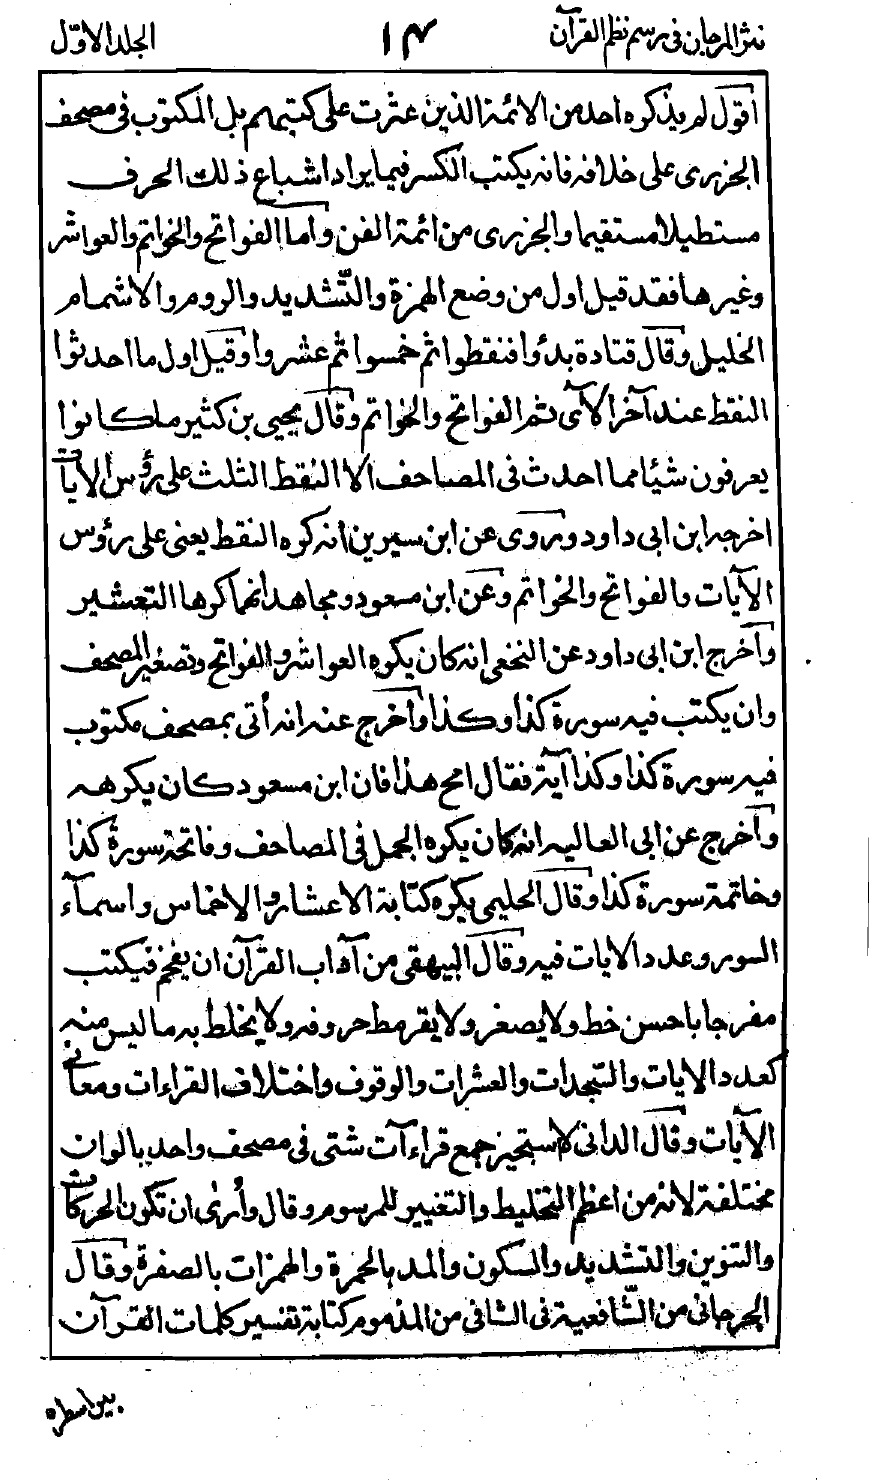 نثر المرجان فى رسم نظم القرآن ١٤ الجلد الاوّل
اقول لم يذكره احد من الائمة الذين عثرت على كتبهم بل المكتوب فى مصحف
الجزرى على خلافه فانه يكتب الكسر فيما يراد اشباع ذلك الحرف
مستطيلا مستقيما والجزرى من ائمة الفن واما الفواتح والخواتم والعواشر
وغيرها فقد قيل اول من وضع الهمزة والتّشديد والروم والاشمام
الخليل وقال قتادة بدؤا فنقطوا ثم خمسوا ثم عشروا وقيل اول ما احدثوا
النقط عند آخر الآى ثم الفواتح والخواتم وقال يحيى بن كثير ما كانوا
يعرفون شيئا مما احدث فى المصاحف الا النقط الثلث على رؤس الآيات
اخرجه ابن ابى داود وروى عن ابن سيرين انه كره النقط يعنى على رؤس
الآيات والفواتح والخواتم وعن ابن مسعود ومجاهد انهما كرها التعشير
وآخرج ابن ابى داود عن النخعى انه كان يكره العواشر والفواتح وتصغير المصحف
وان يكتب فيه سورة كذا وكذا وآخرج عنه انه أتى بمصحف مكتوب
فيه سورة كذا وكذا آية فقال امح هذا فان ابن مسعود كان يكرهه
وآخرج عن ابى العاليه انه كان يكره الجمل فى المصاحف وفاتحة سورة كذا
وخاتمة سورة كذا وقال الحليمى يكره كتابة الاعشار والاخماس واسمآء
السور وعدد الايات فيه وقال البيهقى من آداب القرآن ان يفخم فيكتب
مفرجا باحسن خط ولا يصغر ولا يقرمط حروفه ولا يخلط به ما ليس منه
كعدد الايات والسجدات والعشرات والوقوف واختلاف القراءات ومعانى
الآيات وقال الدانى لا استجيز جمع قراءآت شتى فى مصحف واحد بالوان
مختلفة لانه من اعظم التخليط والتغيير للمرسوم وقال وأرى ان تكون الحركات
والتنوين والتشديد والسكون والمد بالحمرة والهمزات بالصفرة وقال
الجرجانى من الشّافعية فى الشافى من المذموم كتابة تفسير كلمات القرآن
بين اسطره